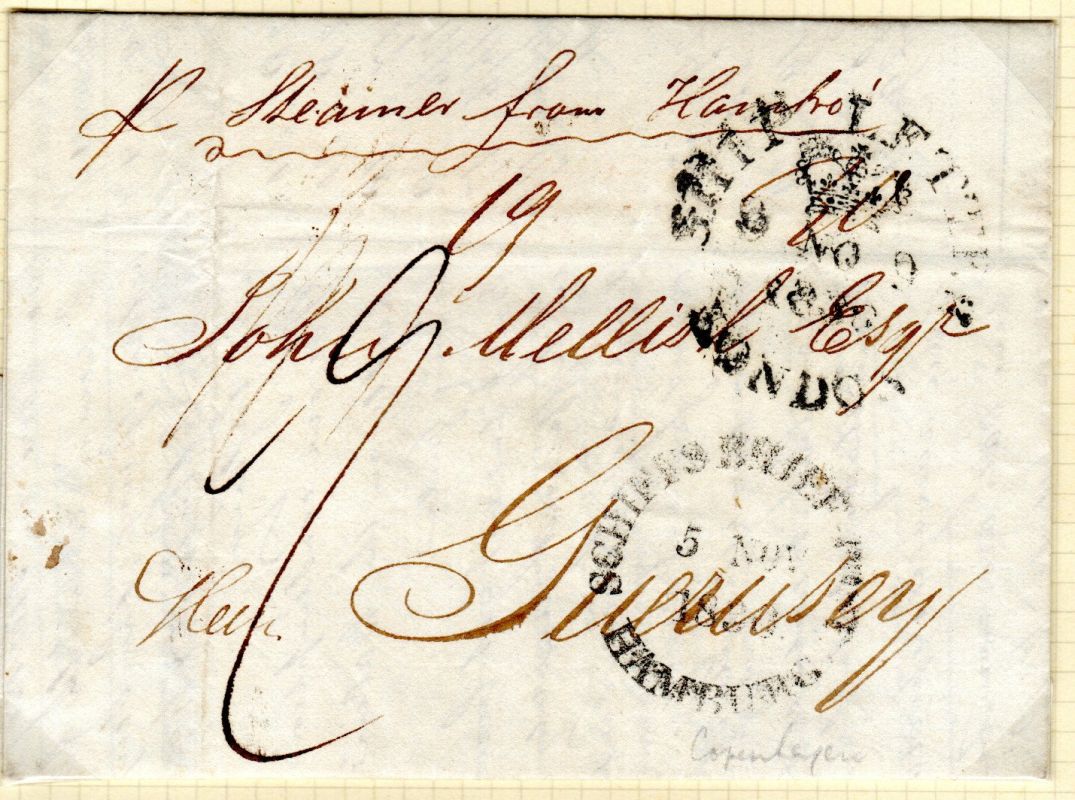 p Steamer from Hambro'
SHIP LETTER
19
NO
9
18
LONDON
John Mellish Esqr
SCHIFFS BRIEF
5 NOV
18
Guernsey
HAMBURG
Copenhagen